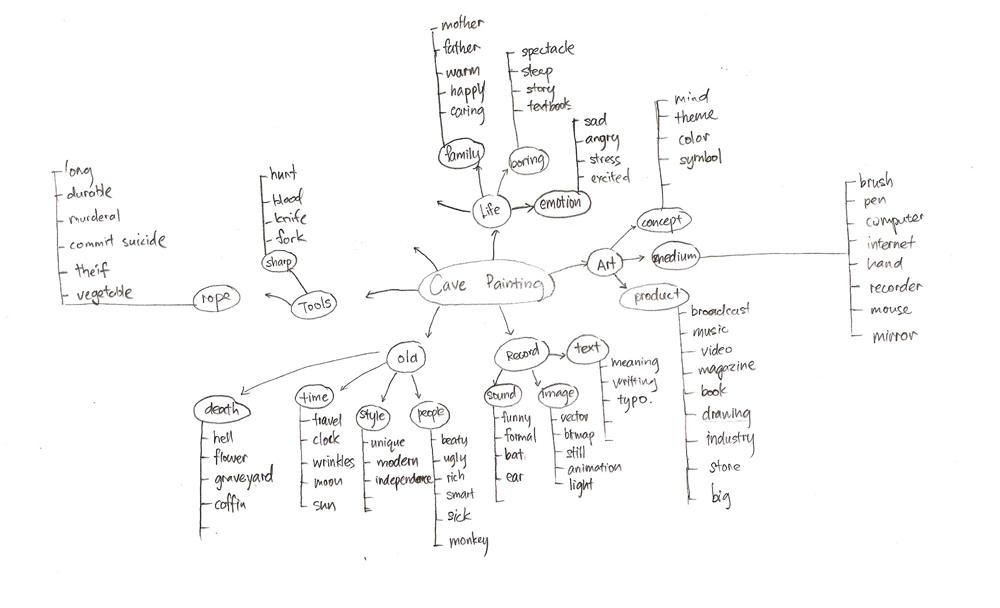 Cave Painting
Life
family
mother
father
warm
happy
caring
boring
spectacle
sleep
story
textbook
emotion
sad
angry
stress
excited
Art
concept
mind
theme
color
symbol
medium
brush
pen
computer
internet
hand
recorder
mouse
mirror
product
broadcast
music
video
magazine
book
drawing
industry
stone
big
Record
text
meaning
writting
typo.
image
vector
bitmap
still
animation
light
sound
funny
formal
bat
ear
old
people
beaty
ugly
rich
smart
sick
monkey
style
unique
modern
independence
time
travel
clock
wrinkles
moon
sun
death
hell
flower
graveyard
coffin
Tools
sharp
hunt
blood
knife
fork
rope
long
durable
murderal
commit suicide
theif
vegetable